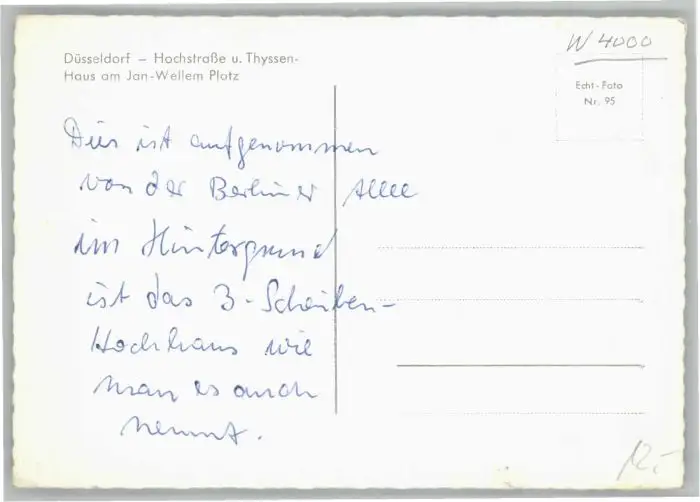 Düsseldorf – Hochstraße u. Thyssen-
Haus am Jan-Wellem Platz
W 4000
Echt-Foto
Nr. 95
Dies ist aufgenommen
von der Berliner Allee
im Hintergrund
ist das 3-Scheiben-
Hochhaus wie
man es auch
nennt.
12,-